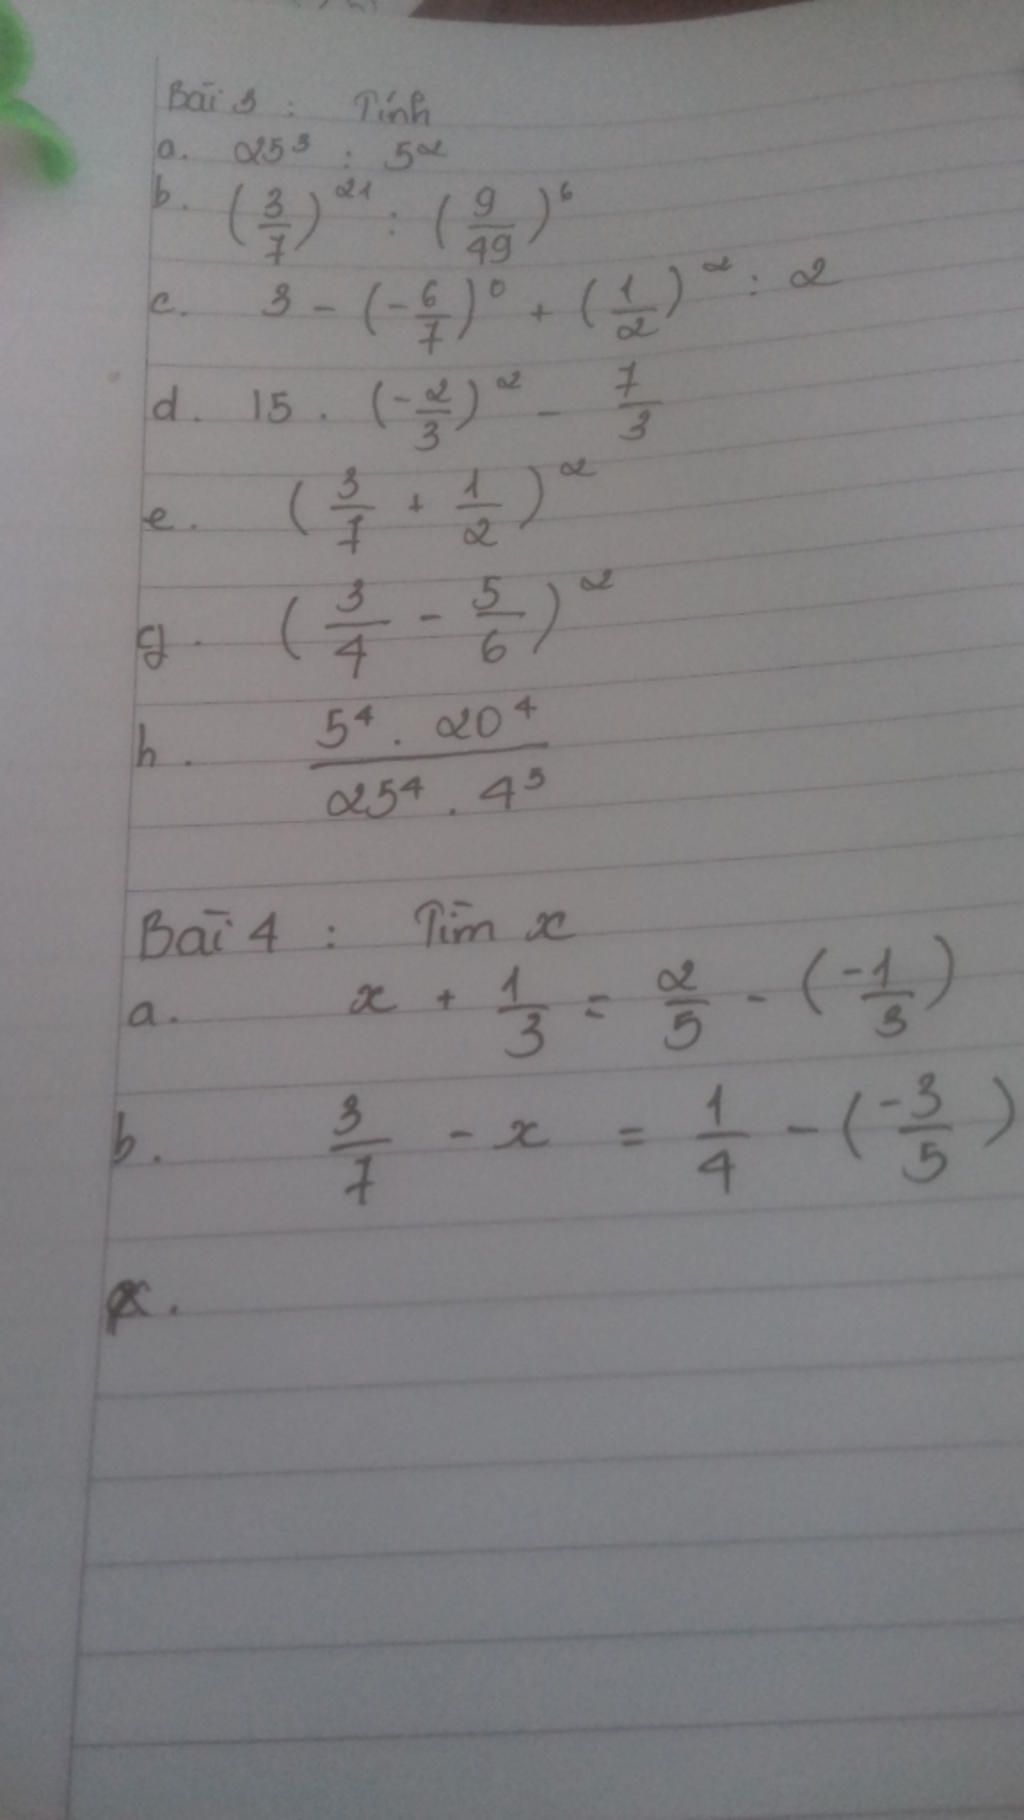 Bài 3 : Tính
a. 25³ : 5²
b. (3/7)²¹ : (9/49)⁶
c. 3 - (-6/7)⁰ + (1/2)² : 2
d. 15 . (-2/3)² - 7/3
e. (3/7 + 1/2)²
g. (3/4 - 5/6)²
h. 5⁴ . 20⁴ / 25⁴ . 4⁵
Bài 4 : Tìm x
a. x + 1/3 = 2/5 - (-1/3)
b. 3/7 - x = 1/4 - (-3/5)